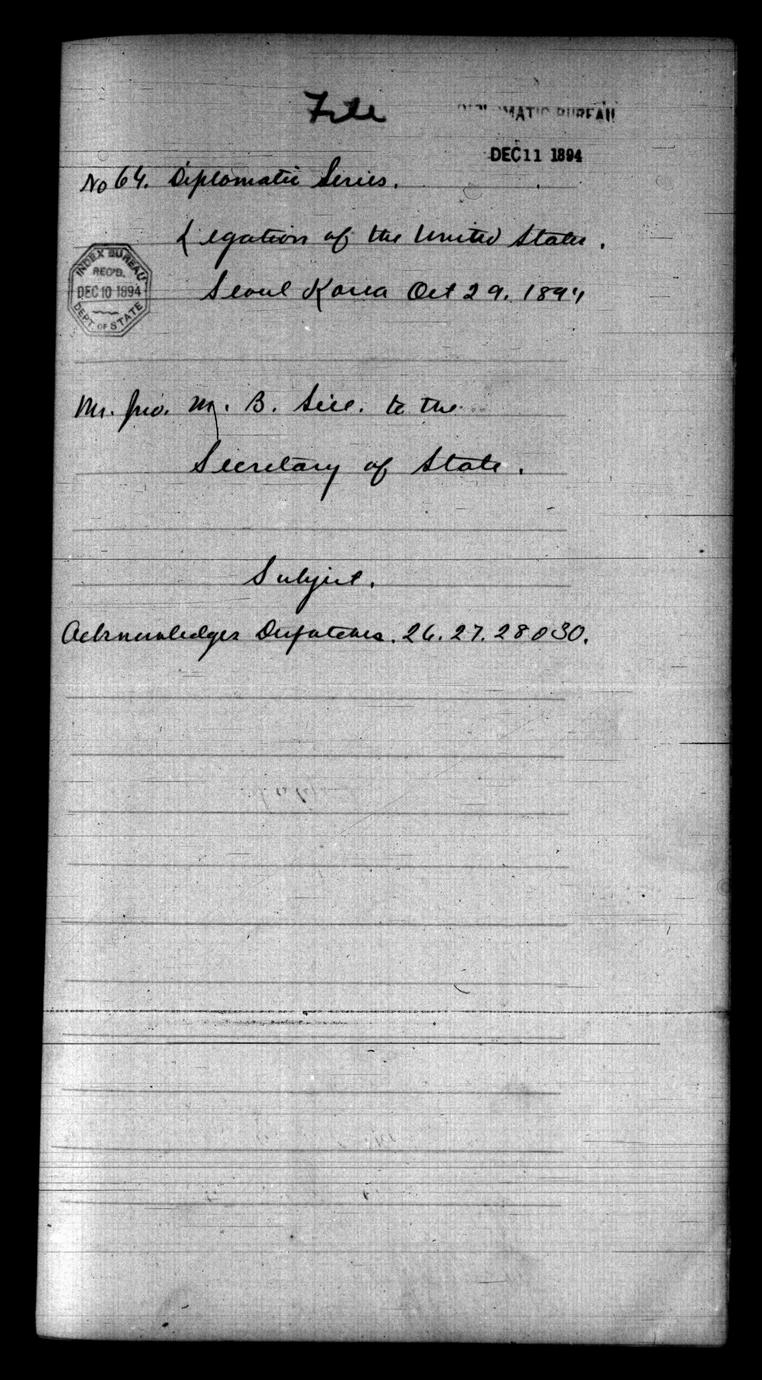 File
DIPLOMATIC BUREAU
DEC 11 1894
No 64. Diplomatic Series.
Legation of the United States.
INDEX BUREAU
REC'D.
DEC 10 1894
DEPT. OF STATE
Seoul Korea Oct 29. 1894
Mr. Jno. M. B. Sill. to the
Secretary of State.
Subject.
Acknowledges Despatches. 26. 27. 28 & 30.